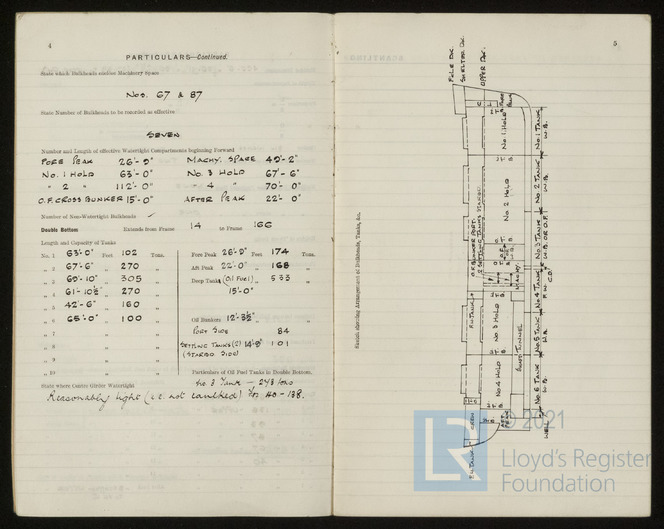 4
PARTICULARS—Continued.
State which Bulkheads enclose Machinery Space
Nos. 67 & 87
State Number of Bulkheads to be recorded as effective
SEVEN
Number and Length of effective Watertight Compartments beginning Forward
FORE PEAK 26'-9" MACHY. SPACE 49'-2"
No. 1 HOLD 63'-0" No. 3 HOLD 67'-6"
" 2 " 112'-0" " 4 " 70'-0"
O.F. CROSS BUNKER 15'-0" AFTER PEAK 22'-0"
Number of Non-Watertight Bulkheads
Double Bottom Extends from Frame 14 to Frame 166
Length and Capacity of Tanks
No. 1 63'-0" Feet 102 Tons. Fore Peak 26'-9" Feet 174 Tons.
" 2 67'-6" " 270 " Aft Peak 22'-0" " 168 "
" 3 69'-10" " 305 " Deep Tanks (Oil Fuel) " 533 "
" 4 61'-10½" " 270 " 15'-0"
" 5 42'-6" " 160 " Oil Bunkers 12'-3½"
" 6 65'-0" " 100 " PORT SIDE 84
" 7 " " SETTLING TANKS (2) 14'-9" 101
" 8 " " (STARBD SIDE)
" 9
" 10 Particulars of Oil Fuel Tanks in Double Bottom,
No. 3 Tank — 293 tons
State where Centre Girder Watertight
Reasonably tight (i.e. not caulked) Frs 40 – 138.
5
Sketch showing Arrangement of Bulkheads, Tanks, &c.
F'CLE DK.
SHELTER DK.
UPPER DK.
FORE PEAK
No. 1 HOLD
No. 1 TANK W.B.
No. 2 HOLD
No. 2 TANK W.B.
No. 3 TANK W.B. OR O.F.
O.F. BUNKER PORT.
2 SETTLING TANKS STARBD
No. 4 TANK F.W.
C.D.
No. 3 HOLD
No. 5 TANK
SHAFT TUNNEL
No. 4 HOLD
No. 6 TANK W.B.
F.W. TANK
CREW
AFT PEAK
WELL
F.W. TANK
© 2021
LR
Lloyd's Register
Foundation